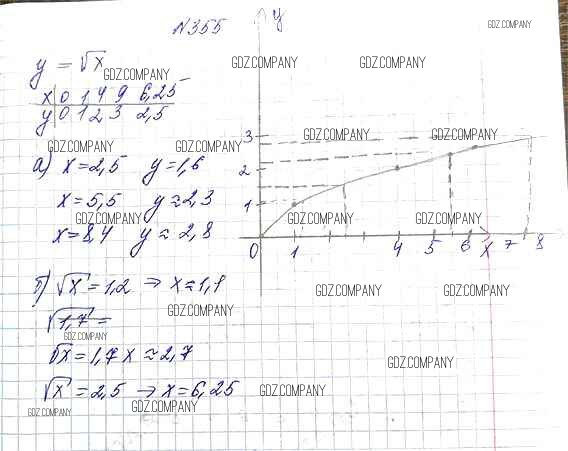 N355
y = √x
x 0 1 4 9 6,25
y 0 1 2 3 2,5
а) x = 2,5 y = 1,6
x = 5,5 y ≈ 2,3
x = 8,4 y ≈ 2,8
б) √x = 1,2 ⇒ x ≈ 1,1
√1,7 =
√x = 1,7 x ≈ 2,7
√x = 2,5 → x = 6,25
y
3
2
1
0 1 4 5 6 x 7 8
GDZ.COMPANY
GDZ.COMPANY
GDZ.COMPANY
GDZ.COMPANY
GDZ.COMPANY
GDZ.COMPANY
GDZ.COMPANY
GDZ.COMPANY
GDZ.COMPANY
GDZ.COMPANY
GDZ.COMPANY
GDZ.COMPANY
GDZ.COMPANY
GDZ.COMPANY
GDZ.COMPANY
GDZ.COMPANY
GDZ.COMPANY
GDZ.COMPANY
GDZ.COMPANY
GDZ.COMPANY